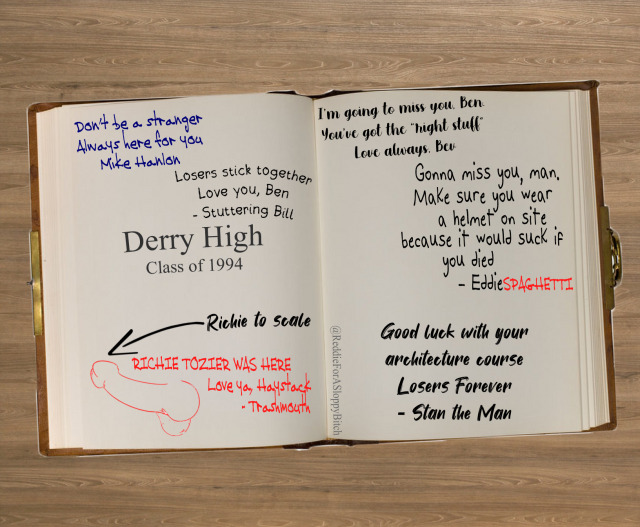 Don't be a stranger
Always here for you
Mike Hanlon
Losers stick together
Love you, Ben
- Stuttering Bill
Derry High
Class of 1994
Richie to scale
RICHIE TOZIER WAS HERE
Love ya, Haystack
- Trashmouth
I'm going to miss you, Ben.
You've got the "right stuff"
Love always, Bev
Gonna miss you, man.
Make sure you wear
a helmet on site
because it would suck if
you died
- EddieSPAGHETTI
Good luck with your
architecture course
Losers Forever
- Stan the Man
@ReddieForASloppyBitch